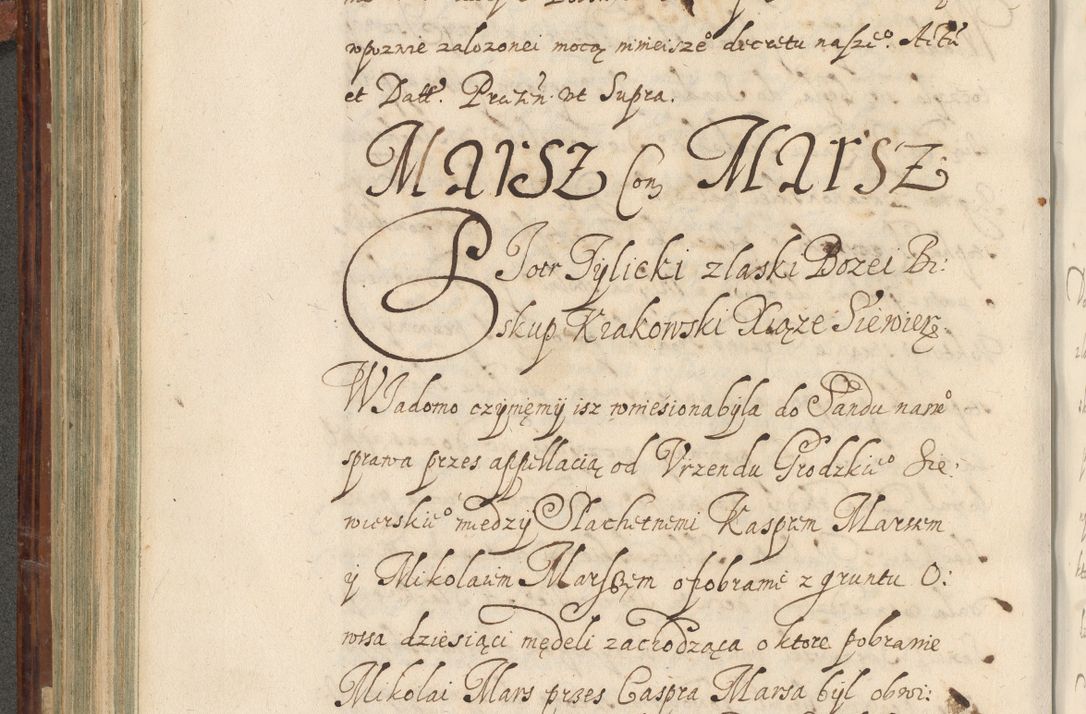 wpoznie założonei mocą mnieisze° decretu nasze°. Actũ
et Datt. Prazñ. vt Supra.
MARSZ Con MARSZ
PIotr Tylicki z laski Bozei Bi:
skup Krakowski Xiąze Siewierz
WIadomo czynięmÿ isz wniesiona bÿla do Sandu nasze°
sprawa przes appellacią od Vrzendu Grodzkie° Sie:
wierskie° miedzÿ Slachetnemi Kasprem Marsem
ÿ Mikolaiem Marszem o pobranie z gruntu O:
wsa dziesiąci mędeli zachodząca o ktore pobranie
Mikolai Mars przes Caspra Marsa bÿl obwi: